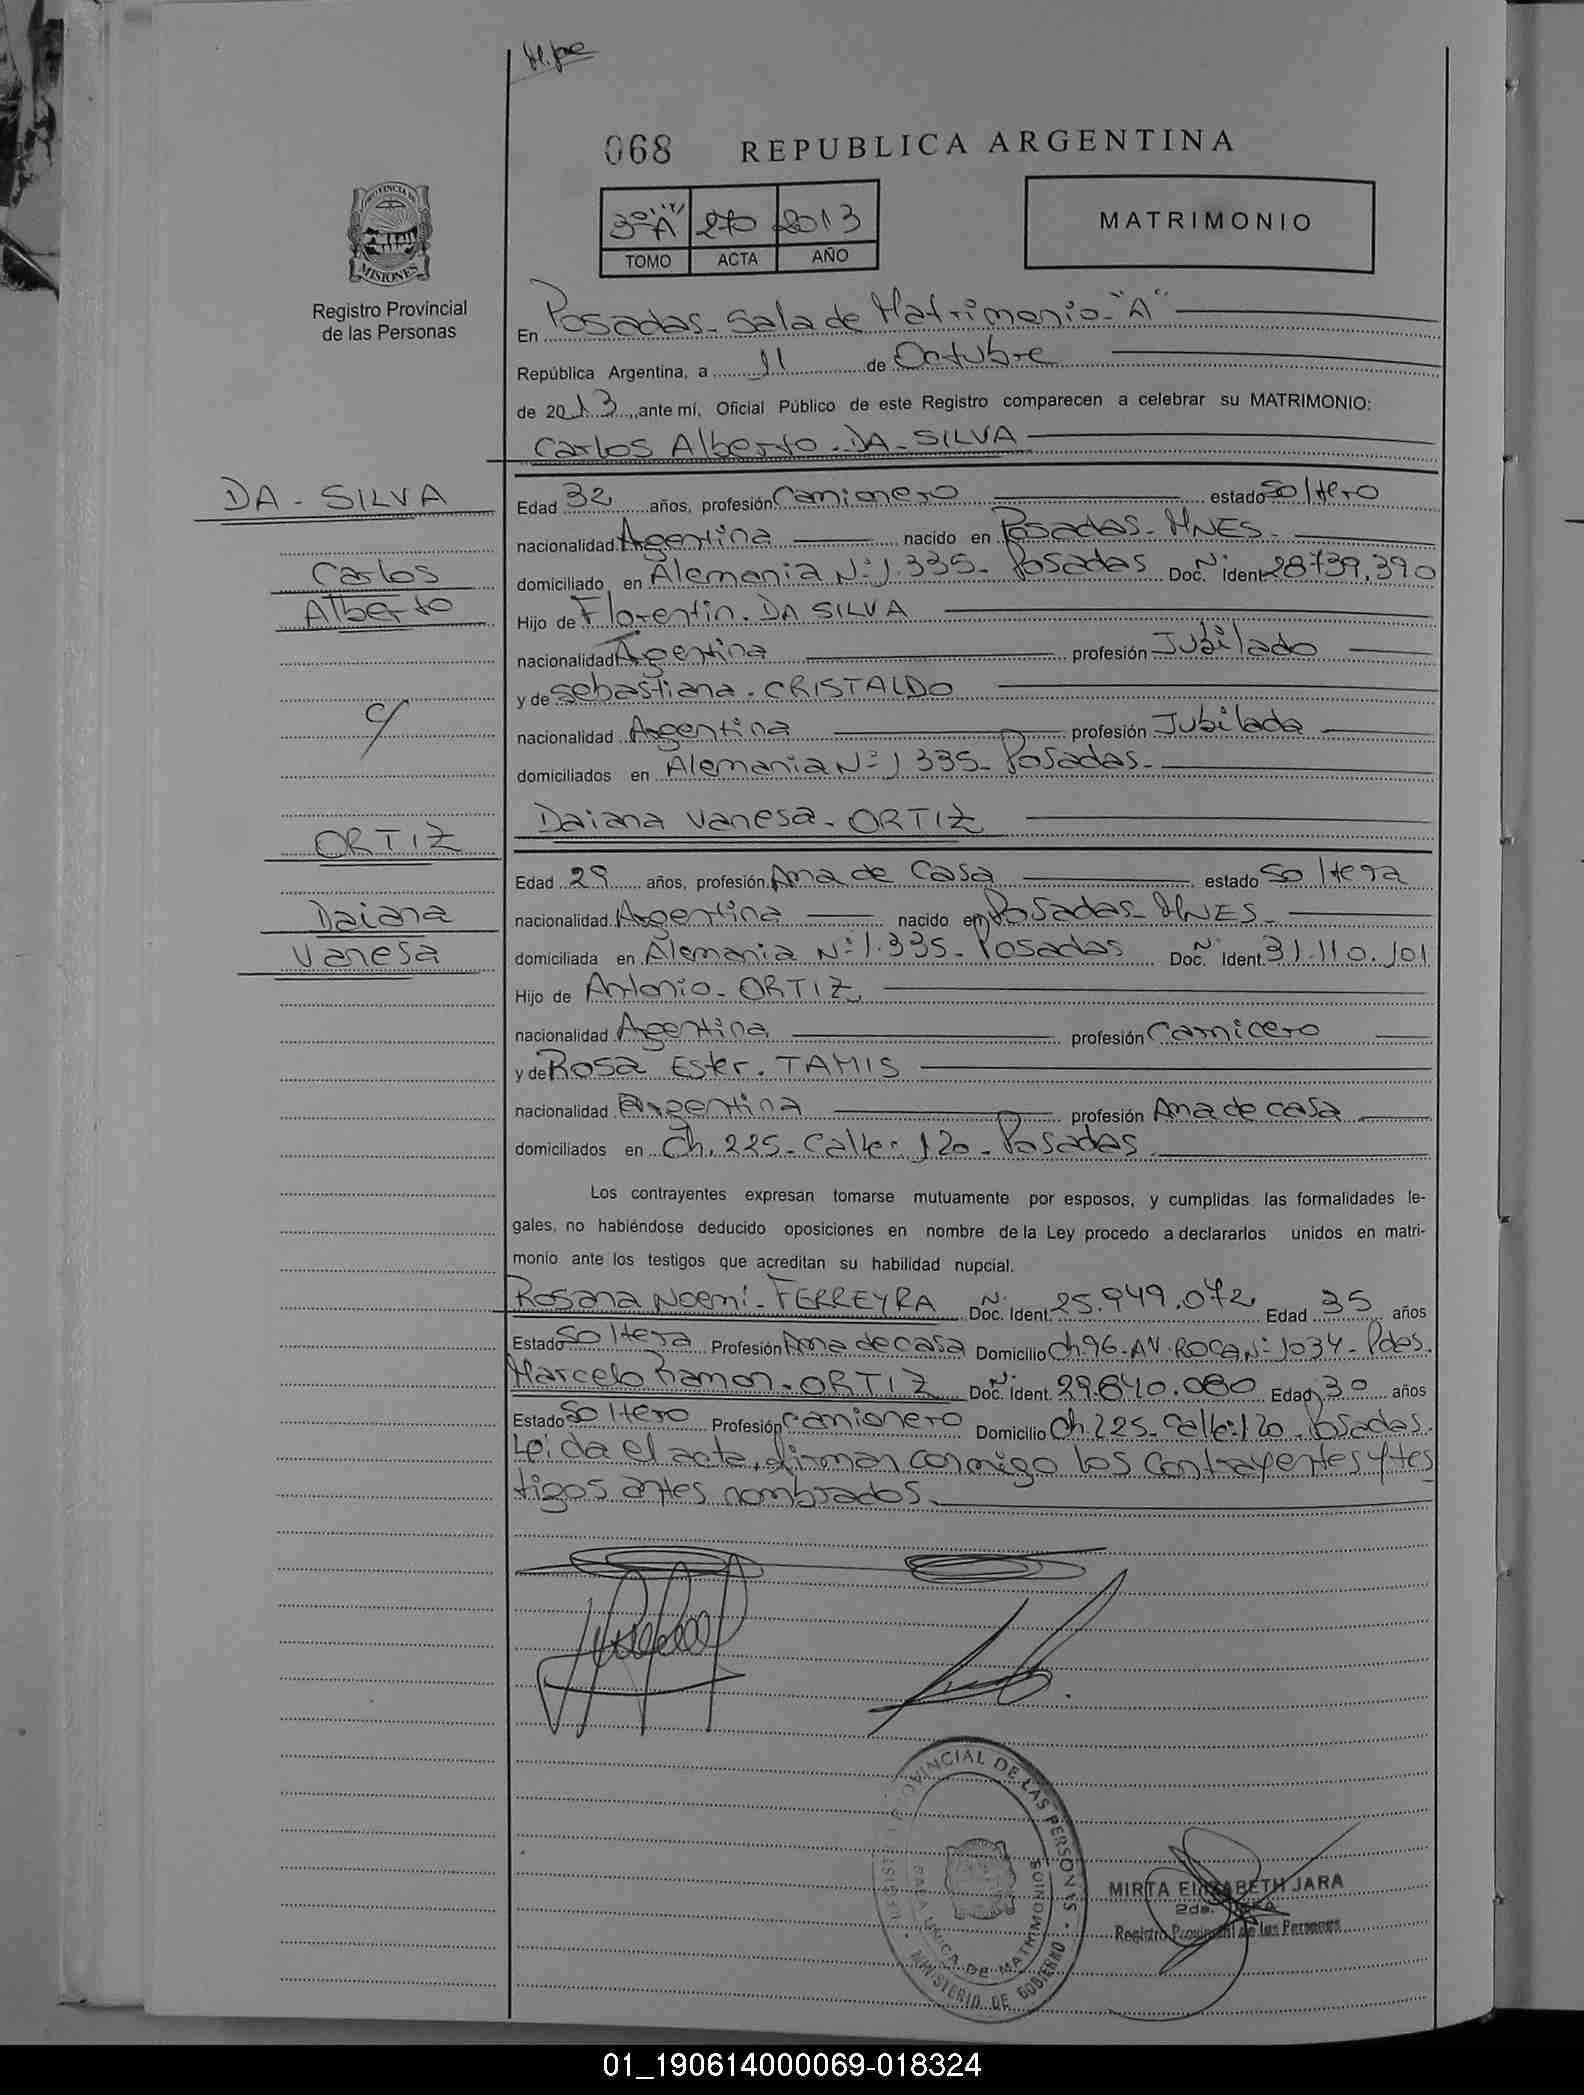 068 REPUBLICA ARGENTINA
3º "A" 270 2013
TOMO ACTA AÑO
MATRIMONIO
PROVINCIA DE MISIONES
Registro Provincial
de las Personas
En Posadas - Sala de Matrimonio - "A"
República Argentina, a 11 de Octubre
de 2013, ante mí, Oficial Público de este Registro comparecen a celebrar su MATRIMONIO:
Carlos Alberto - DA - SILVA
DA - SILVA
Carlos
Alberto
c/
ORTIZ
Daiana
Vanesa
Edad 32 años, profesión Camionero estado Soltero
nacionalidad Argentina nacido en Posadas - MNES -
domiciliado en Alemania Nº 1.335 - Posadas Doc. Nº Ident. 28.739.390
Hijo de Florentin - DA SILVA
nacionalidad Argentina profesión Jubilado
y de Sebastiana - CRISTALDO
nacionalidad Argentina profesión Jubilada
domiciliados en Alemania Nº 1335 - Posadas -
Daiana Vanesa - ORTIZ
Edad 29 años, profesión Ama de Casa estado Soltera
nacionalidad Argentina nacido en Posadas - MNES -
domiciliada en Alemania Nº 1.335 - Posadas Doc. Nº Ident. 31.110.101
Hijo de Antonio - ORTIZ
nacionalidad Argentina profesión Carnicero
y de Rosa Ester - TAMIS
nacionalidad Argentina profesión Ama de casa
domiciliados en Ch. 225 - Calle: 120 - Posadas
Los contrayentes expresan tomarse mutuamente por esposos, y cumplidas las formalidades le-
gales, no habiéndose deducido oposiciones en nombre de la Ley procedo a declararlos unidos en matri-
monio ante los testigos que acreditan su habilidad nupcial.
Rosana Noemi - FERREYRA Doc. Nº Ident. 25.949.072 Edad 35 años
Estado Soltera Profesión Ama de casa Domicilio Ch. 96 - AV. ROCA Nº 1034 - Pdas.
Marcelo Ramon - ORTIZ Doc. Nº Ident. 29.840.080 Edad 30 años
Estado Soltero Profesión Camionero Domicilio Ch. 225 - Calle: 120 - Posadas.
Leida el acta, firman conmigo los Contrayentes y tes
tigos antes nombrados.
REGISTRO PROVINCIAL DE LAS PERSONAS
SALA UNICA DE MATRIMONIOS
MINISTERIO DE GOBIERNO
MIRTA ELIZABETH JARA
2da.
Registro Provincial de las Personas
01_190614000069-018324